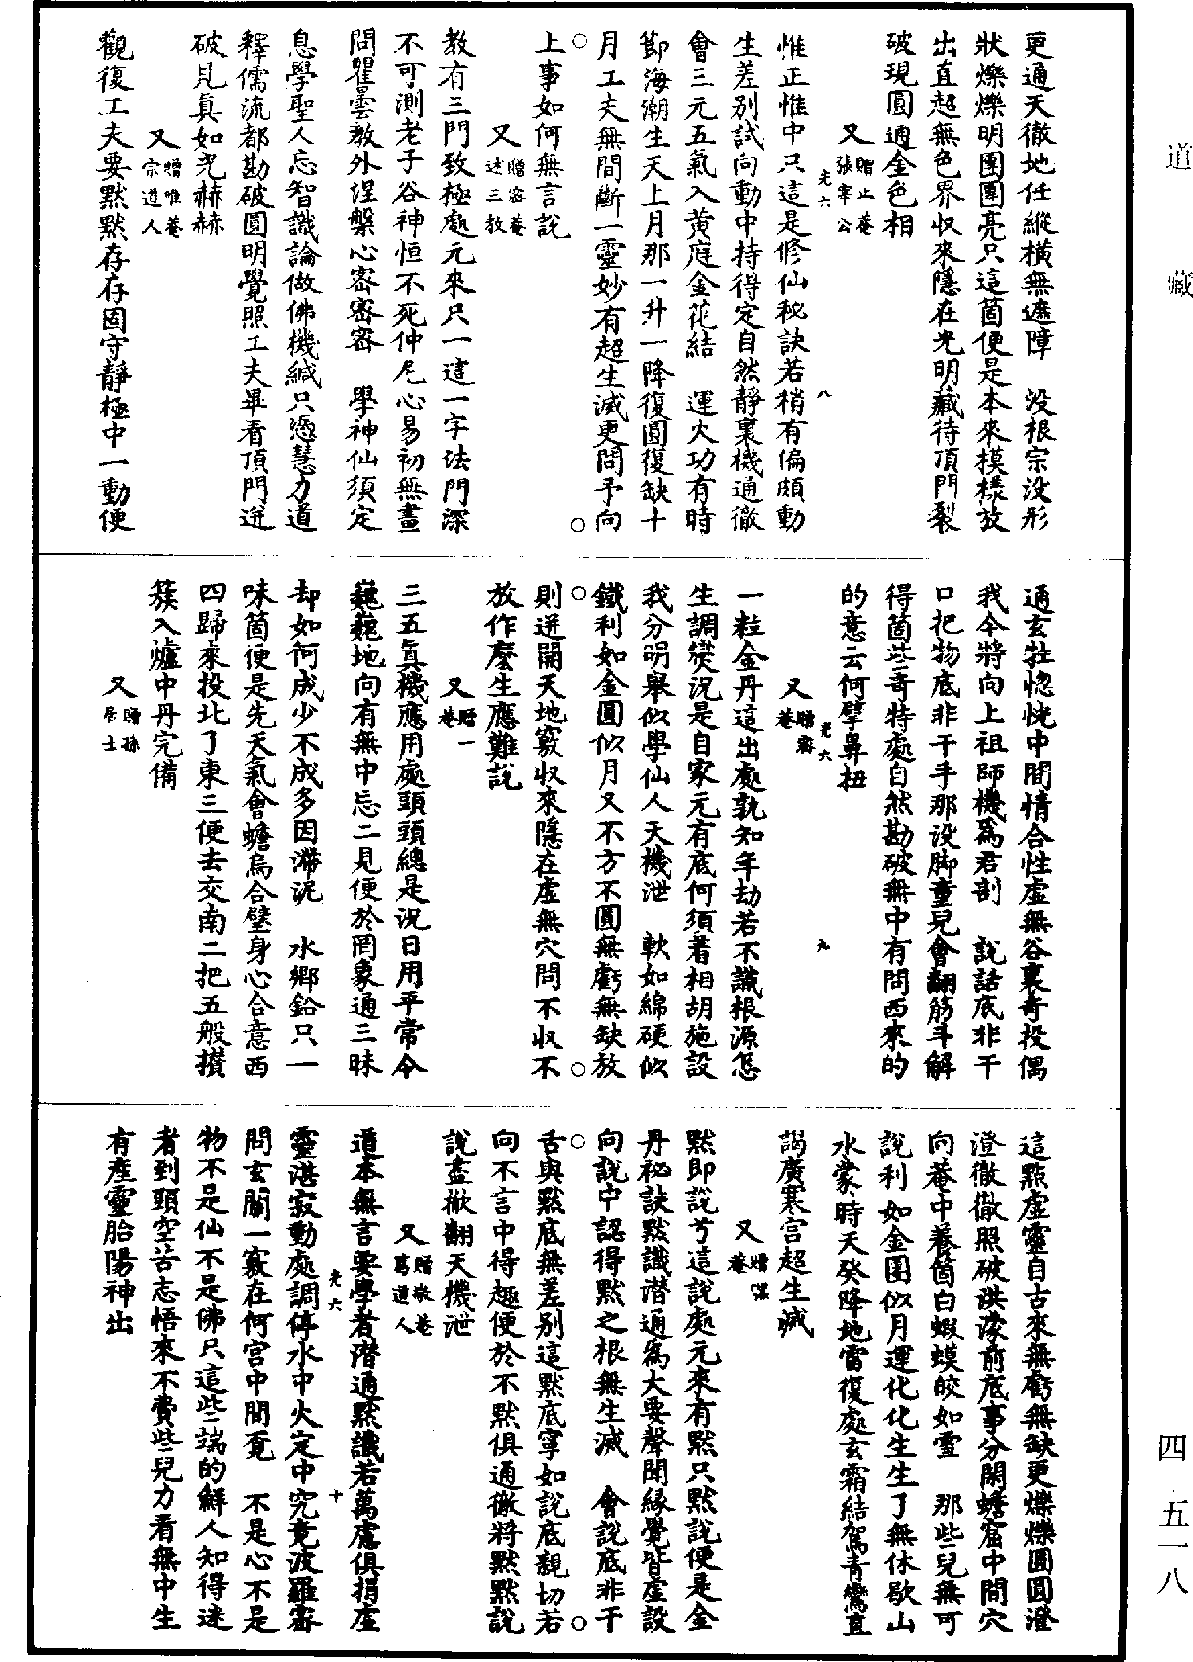 道藏
更通天徹地任縱橫無遮障　没根宗没形
狀爍爍明團團亮只這箇便是本來模樣放
出直超無色界収來隱在光明藏待頂門裂
破現圓通金色相
又贈止菴張宰公
光六　八
惟正惟中只這是修仙秘訣若稍有偏頗動
生差别試向動中持得定自然靜裏機通徹
會三元五氣入黄庭金花結　運火功有時
節海潮生天上月那一升一降復圓復缺十
月工夫無間斷一靈妙有超生滅更問予向
上事如何無言說
又贈密菴述三教
教有三門致極處元來只一這一字法門深
不可測老子谷神恒不死仲尼心易初無畫
問瞿曇教外涅槃心密密密　學神仙須定
息學聖人忘智識論做佛機緘只憑慧力道
釋儒流都勘破圓明覺照工夫畢看頂門迸
破見真如光赫赫
又贈唯菴宗道人
觀復工夫要默默存存固守靜極中一動便
通玄牡惚恍中間情合性虚無谷裏奇投偶
我今將向上祖師機為君剖　說話底非干
口把物底非干手那没脚童兒會翻筋斗解
得箇些奇特處自然勘破無中有問西來的
的意云何擘鼻扭
又贈密菴
光六　九
一粒金丹這出處孰知年劫若不識根源怎
生調燮況是自家元有底何須著相胡施設
我分明舉似學仙人天機泄　軟如綿硬似
鐵利如金圓似月又不方不圓無虧無缺放
則迸開天地竅収來隱在虚無穴問不収不
放作麽生應難說
又贈一菴
三五真機應用處頭頭總是況日用平常令
巍巍地向有無中忘二見便於罔象通三昧
却如何成少不成多因滯泥　水鄉鉛只一
味箇便是先天氣會蟾烏合璧身心合意西
四歸來投北了東三便去交南二把五般攢
簇入爐中丹完備
又贈孫居士
這點虚靈自古來無虧無缺更爍爍圓圓澄
澄徹徹照破洪濛前底事分開蟾窟中間穴
向菴中養箇白蝦蟆皎如雪　那些兒無可
說利如金圓似月運化化生生了無休歇山
水蒙時天癸降地雷復處玄霜結駕青鸞直
謁廣寒宫超生滅
又贈菴
默即說兮這說處元來有默只默說便是金
丹祕訣默識潛通為大要聲聞緣覺皆虚設
向說中認得默之根無生滅　會說底非干
舌與默底無差别這默底寧如說底親切若
向不言中得趣便於不默俱通徹將默默說
說盡掀翻天機泄
又贈敬菴葛道人
道本無言要學者潛通默識若萬慮俱捐虚
光六　十
靈湛寂動處調停水中火定中究竟波羅密
問玄關一竅在何宫中間覔　不是心不是
物不是仙不是佛只這些端的鮮人知得迷
者到頭空苦志悟來不費些兒力看無中生
有產靈胎陽神出
四・五一八